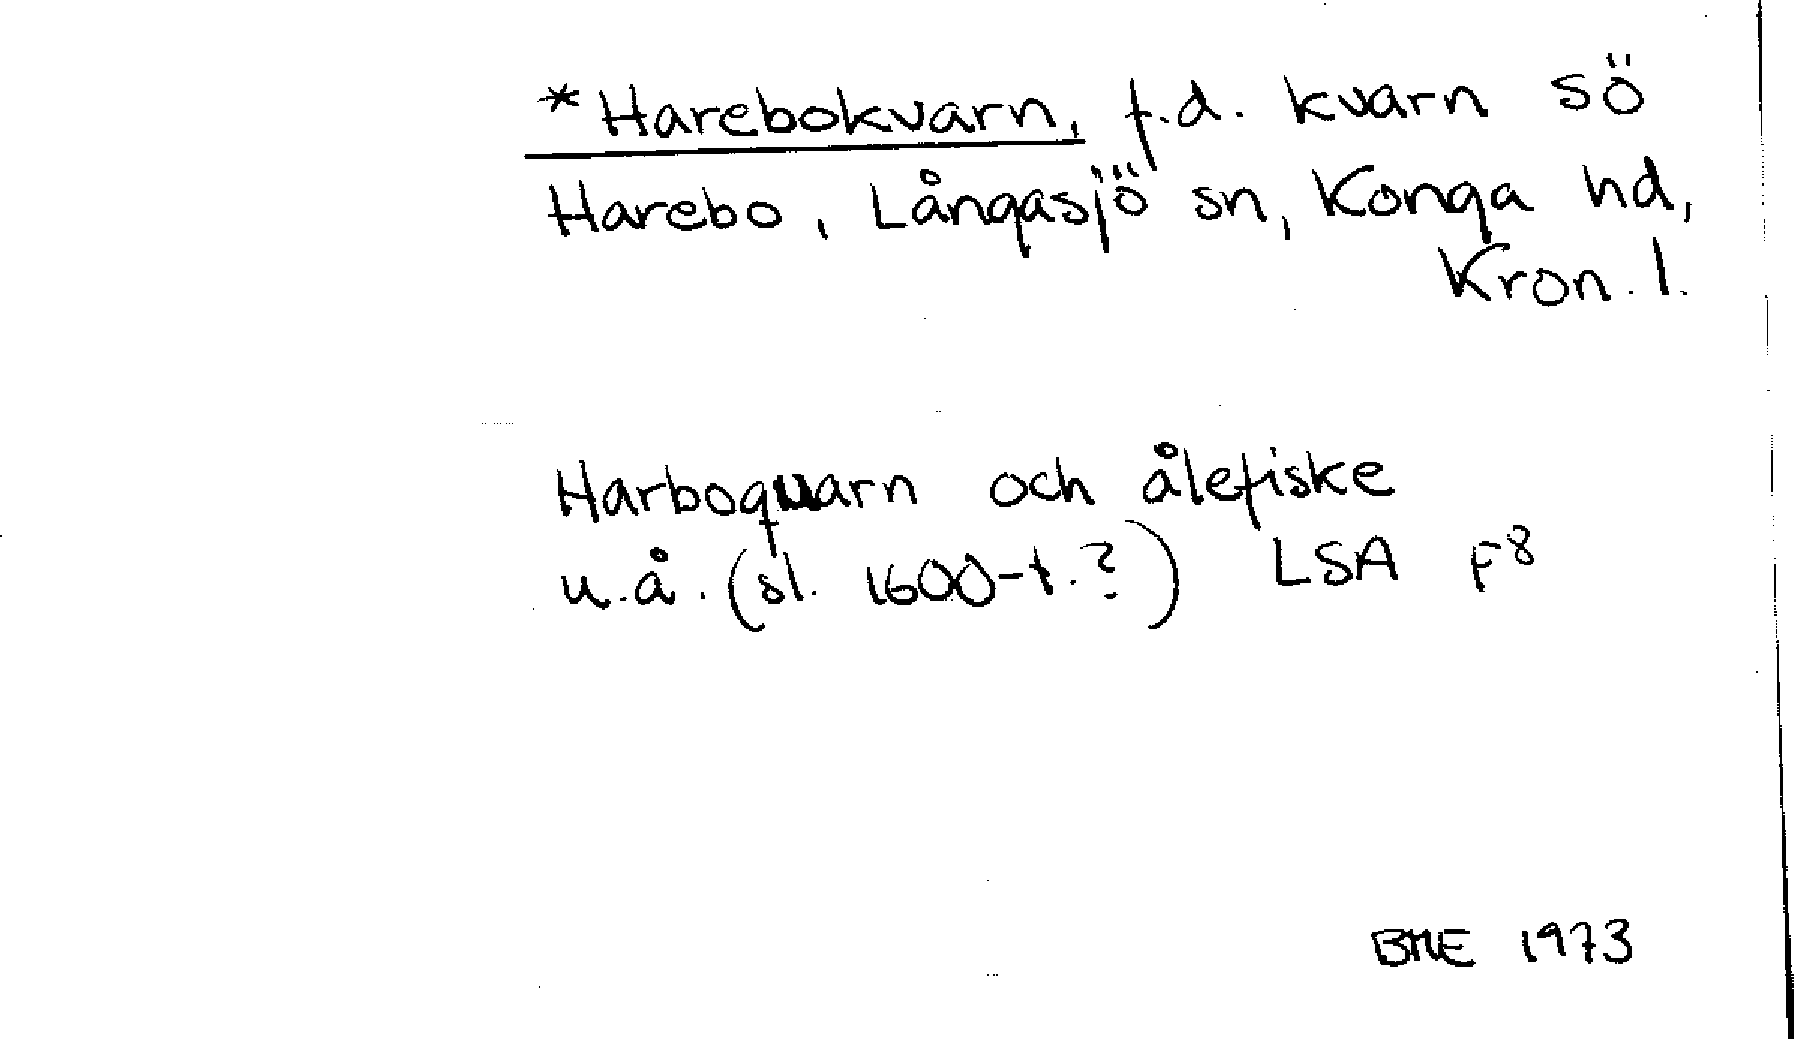 *Harebokvarn, f.d. kvarn sö
Harebo, Långasjö sn, Konga hd,
Kron. l.
Harboquarn och ålefiske
u.å. (sl. 1600-t.?) LSA F8
BME 1973